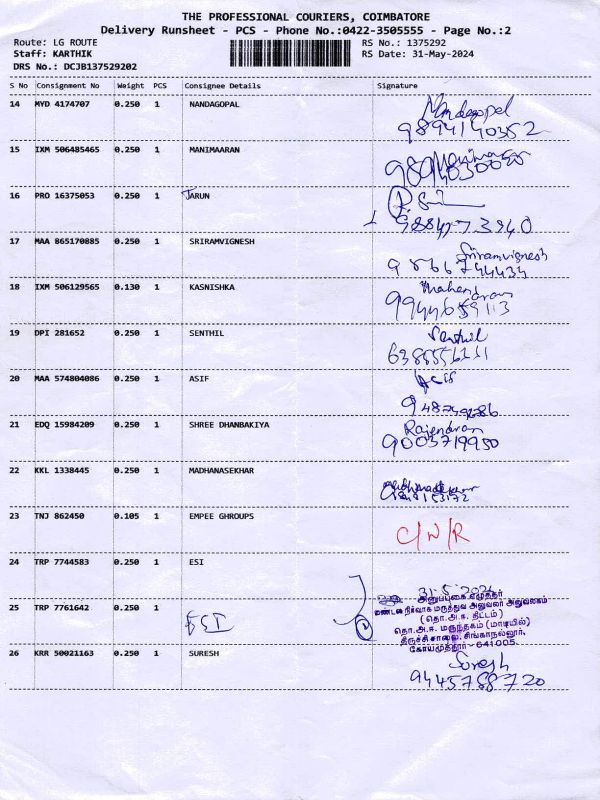 THE PROFESSIONAL COURIERS, COIMBATORE
Delivery Runsheet - PCS - Phone No.:0422-3505555 - Page No.:2
Route: LG ROUTE RS No.: 1375292
Staff: KARTHIK RS Date: 31-May-2024
DRS No.: DCJB137529202
S No Consignment No Weight PCS Consignee Details Signature
14 MYD 4174707 0.250 1 NANDAGOPAL Nandagopal
9894140352
15 IXM 506485465 0.250 1 MANIMAARAN
16 PRO 16375053 0.250 1 TARUN
17 MAA 865170885 0.250 1 SRIRAMVIGNESH Sriramvignesh
18 IXM 506129565 0.130 1 KASNISHKA Mahendran
9944659113
19 DPI 281652 0.250 1 SENTHIL Senthil
20 MAA 574804086 0.250 1 ASIF
21 EDQ 15984209 0.250 1 SHREE DHANBAKIYA Rajendran
9003719950
22 KKL 1338445 0.250 1 MADHANASEKHAR
23 TNJ 862450 0.105 1 EMPEE GHROUPS C/N/R
24 TRP 7744583 0.250 1 ESI 31-5-2024
அனுப்புகை எழுத்தர்
மண்டல நிர்வாக மருத்துவ அலுவலர் அலுவலகம்
25 TRP 7761642 0.250 1 ESI (தொ.அ.ஈ. திட்டம்)
தொ.அ.ஈ. மருந்தகம் (மாடியில்)
திருச்சி சாலை, சிங்காநல்லூர்,
கோயமுத்தூர் - 641005.
26 KRR 50021163 0.250 1 SURESH Suresh
9445788720